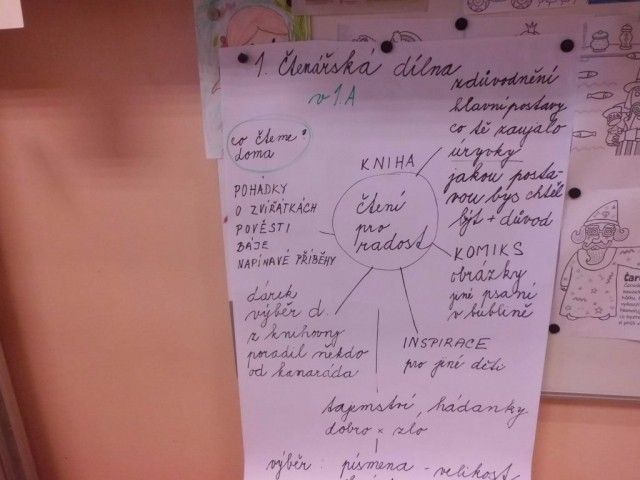 1. Čtenářská dílna
v 1.A
co čteme
doma
?
KNIHA
zdůvodnění
hlavní postavy
co tě zaujalo
úryvky
jakou posta-
vou bys chtěl
být + důvod
POHÁDKY
O ZVÍŘÁTKÁCH
POVĚSTI
BÁJE
NAPÍNAVÉ PŘÍBĚHY
čtení
pro
radost
KOMIKS
obrázky
jiné psaní
v bublině
dárek
výběr d.
z knihovny
poradil někdo
od kamaráda
INSPIRACE
pro jiné děti
tajemství, hádanky
dobro × zlo
výběr : písmena - velikost